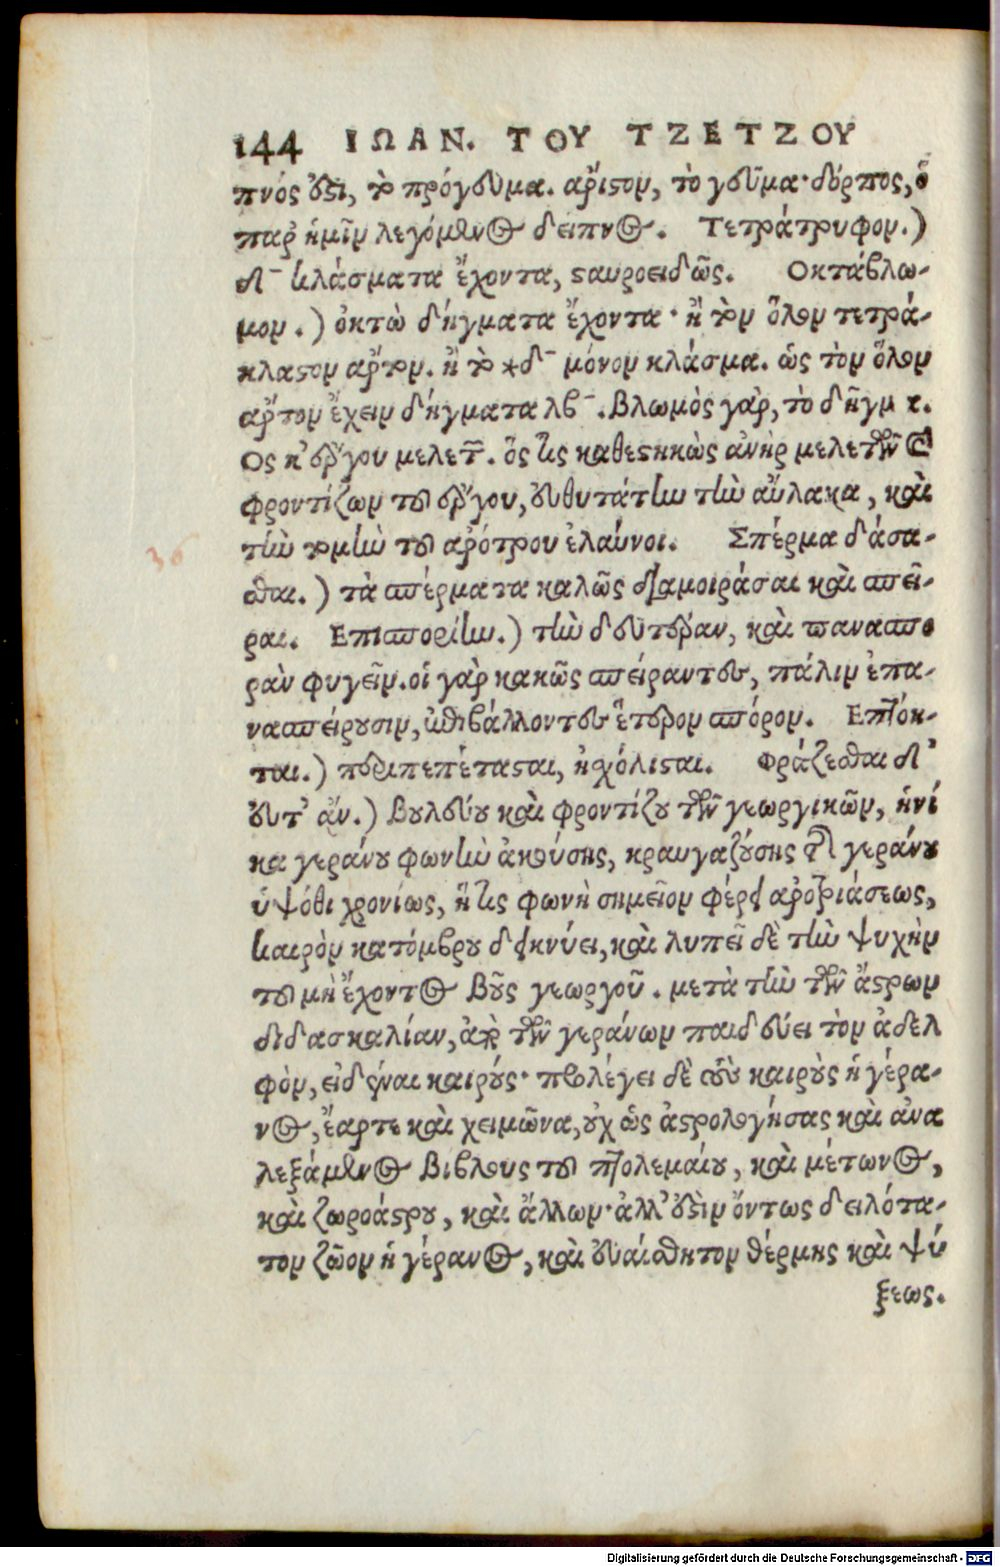 144 ΙΩΑΝ. ΤΟΥ ΤΖΕΤΖΟΥ
πνός ὅϛι, τὸ πρόγευμα. ἄριϛον, τὸ γεῦμα· δόρπος, ὁ
παρ' ἡμῖν λεγόμενος δειπνος. Τετράτρυφον.)
δ¯ κλάσματα ἔχοντα, ϛαυροειδῶς. Οκτάβλω-
μον.) ὀκτὼ δήγματα ἔχοντα· ἢ τὸν ὅλον τετρά-
κλαϛον ἄρτον. ἢ τὸ *δ¯ μόνον κλάσμα. ὡς τὸν ὅλον
ἄρτον ἔχειν δήγματα λβ¯. Βλωμὸς γὰρ, τὸ δῆγμα.
Ος κ' ἔργου μελετ. ὅς τις καθεϛηκὼς ἀνὴρ μελετῶν καὶ
φροντίζων τοῦ ἔργου, εὐθυτάτην τὴν αὔλακα, καὶ
τὴν τομὴν τοῦ ἀρότρου ἐλαύνοι. Σπέρμα δάσα-
σθαι.) τὰ σπέρματα καλῶς διαμοιράσαι καὶ σπεῖ-
ραι. Επισπορίην.) τὴν δευτέραν, καὶ πανασπο
ρὰν φυγεῖν. οἱ γὰρ κακῶς σπείραντες, πάλιν ἐπα-
νασπείρουσιν, ἐπιβάλλοντες ἕτερον σπόρον. Επτόκ-
ται.) περιπεπέταϛαι, ἠχόλιϛαι. Φράζεσθαι δ'
εὖτ' ἄν.) Βουλεύου καὶ φροντίζου τῶν γεωργικῶν, ἡνί
κα γεράνου φωνὴν ἀκούσῃς, κραυγαζούσης τῆς γεράνου
ὑψόθι χρονίως, ἥ τις φωνὴ σημεῖον φέρει ἀροτριάσεως,
καιρὸν κατόμβρου δεικνύει, καὶ λυπεῖ δὲ τὴν ψυχὴν
τοῦ μὴ ἔχοντος βοῦς γεωργοῦ. μετὰ τὴν τῶν ἄϛρων
διδασκαλίαν, ἀπὸ τῶν γεράνων παιδεύει τὸν ἀδελ
φὸν, εἰδέναι καιρούς· προλέγει δὲ τοὺς καιροὺς ἡ γέρα-
νος, ἔαρτε καὶ χειμῶνα, οὐχ ὡς ἀϛρολογήσας καὶ ἀνα
λεξάμενος βιβλους τοῦ πτολεμαίου, καὶ μέτωνος,
καὶ ζωροάϛρου, καὶ ἄλλων· ἀλλ' ἔϛιν ὄντως δειλότα-
τον ζῶον ἡ γέρανος, καὶ εὐαίσθητον θέρμης καὶ ψύ
ξεως.
36
Digitalisierung gefördert durch die Deutsche Forschungsgemeinschaft - DFG